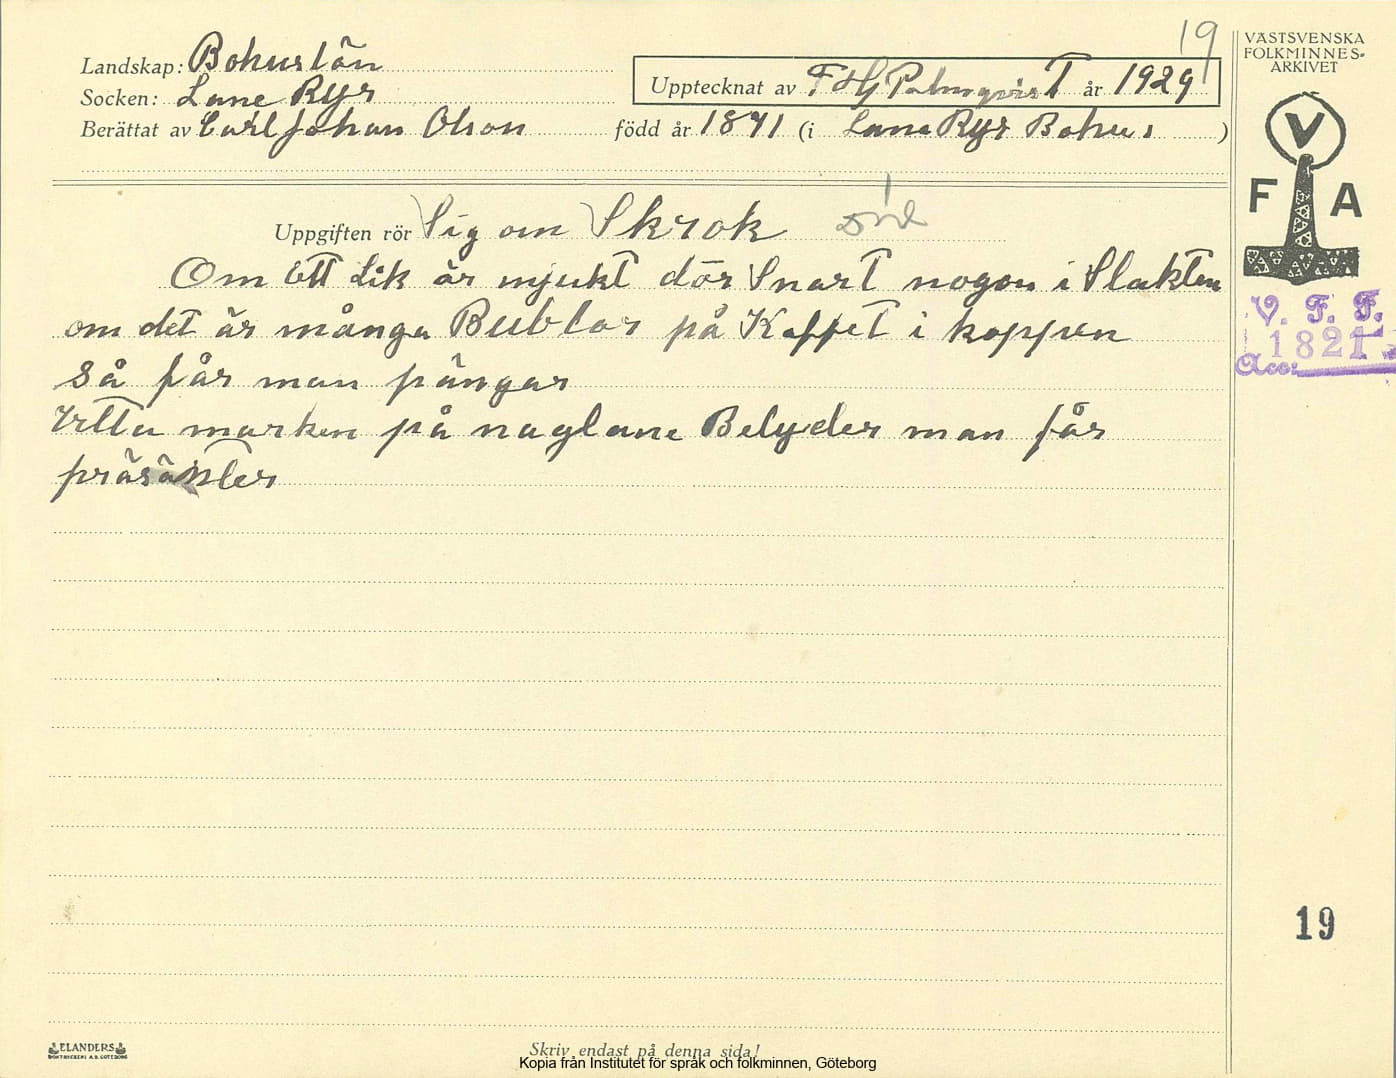 19
VÄSTSVENSKA
FOLKMINNES-
ARKIVET
Landskap: Bohuslän
Socken: Lane Ryr
Upptecknat av F H G Palmqvist år 1929
Berättat av Carl Johan Olson född år 1871 (i Lane Ryr Bohus )
V
F A
Uppgiften rör Sig om Skrok
Om Ett Lik är mjukt dör Snart nogon i Släkten
om det är många Bublor på Kaffet i koppen
så får man pängar
Vita marken på naglane Belyder man får
präsänter
V. F. F.
1821
Acc:
19
ELANDERS
BOKTRYCKERI A.B. GÖTEBORG
Skriv endast på denna sida!
Kopia från Institutet för språk och folkminnen, Göteborg